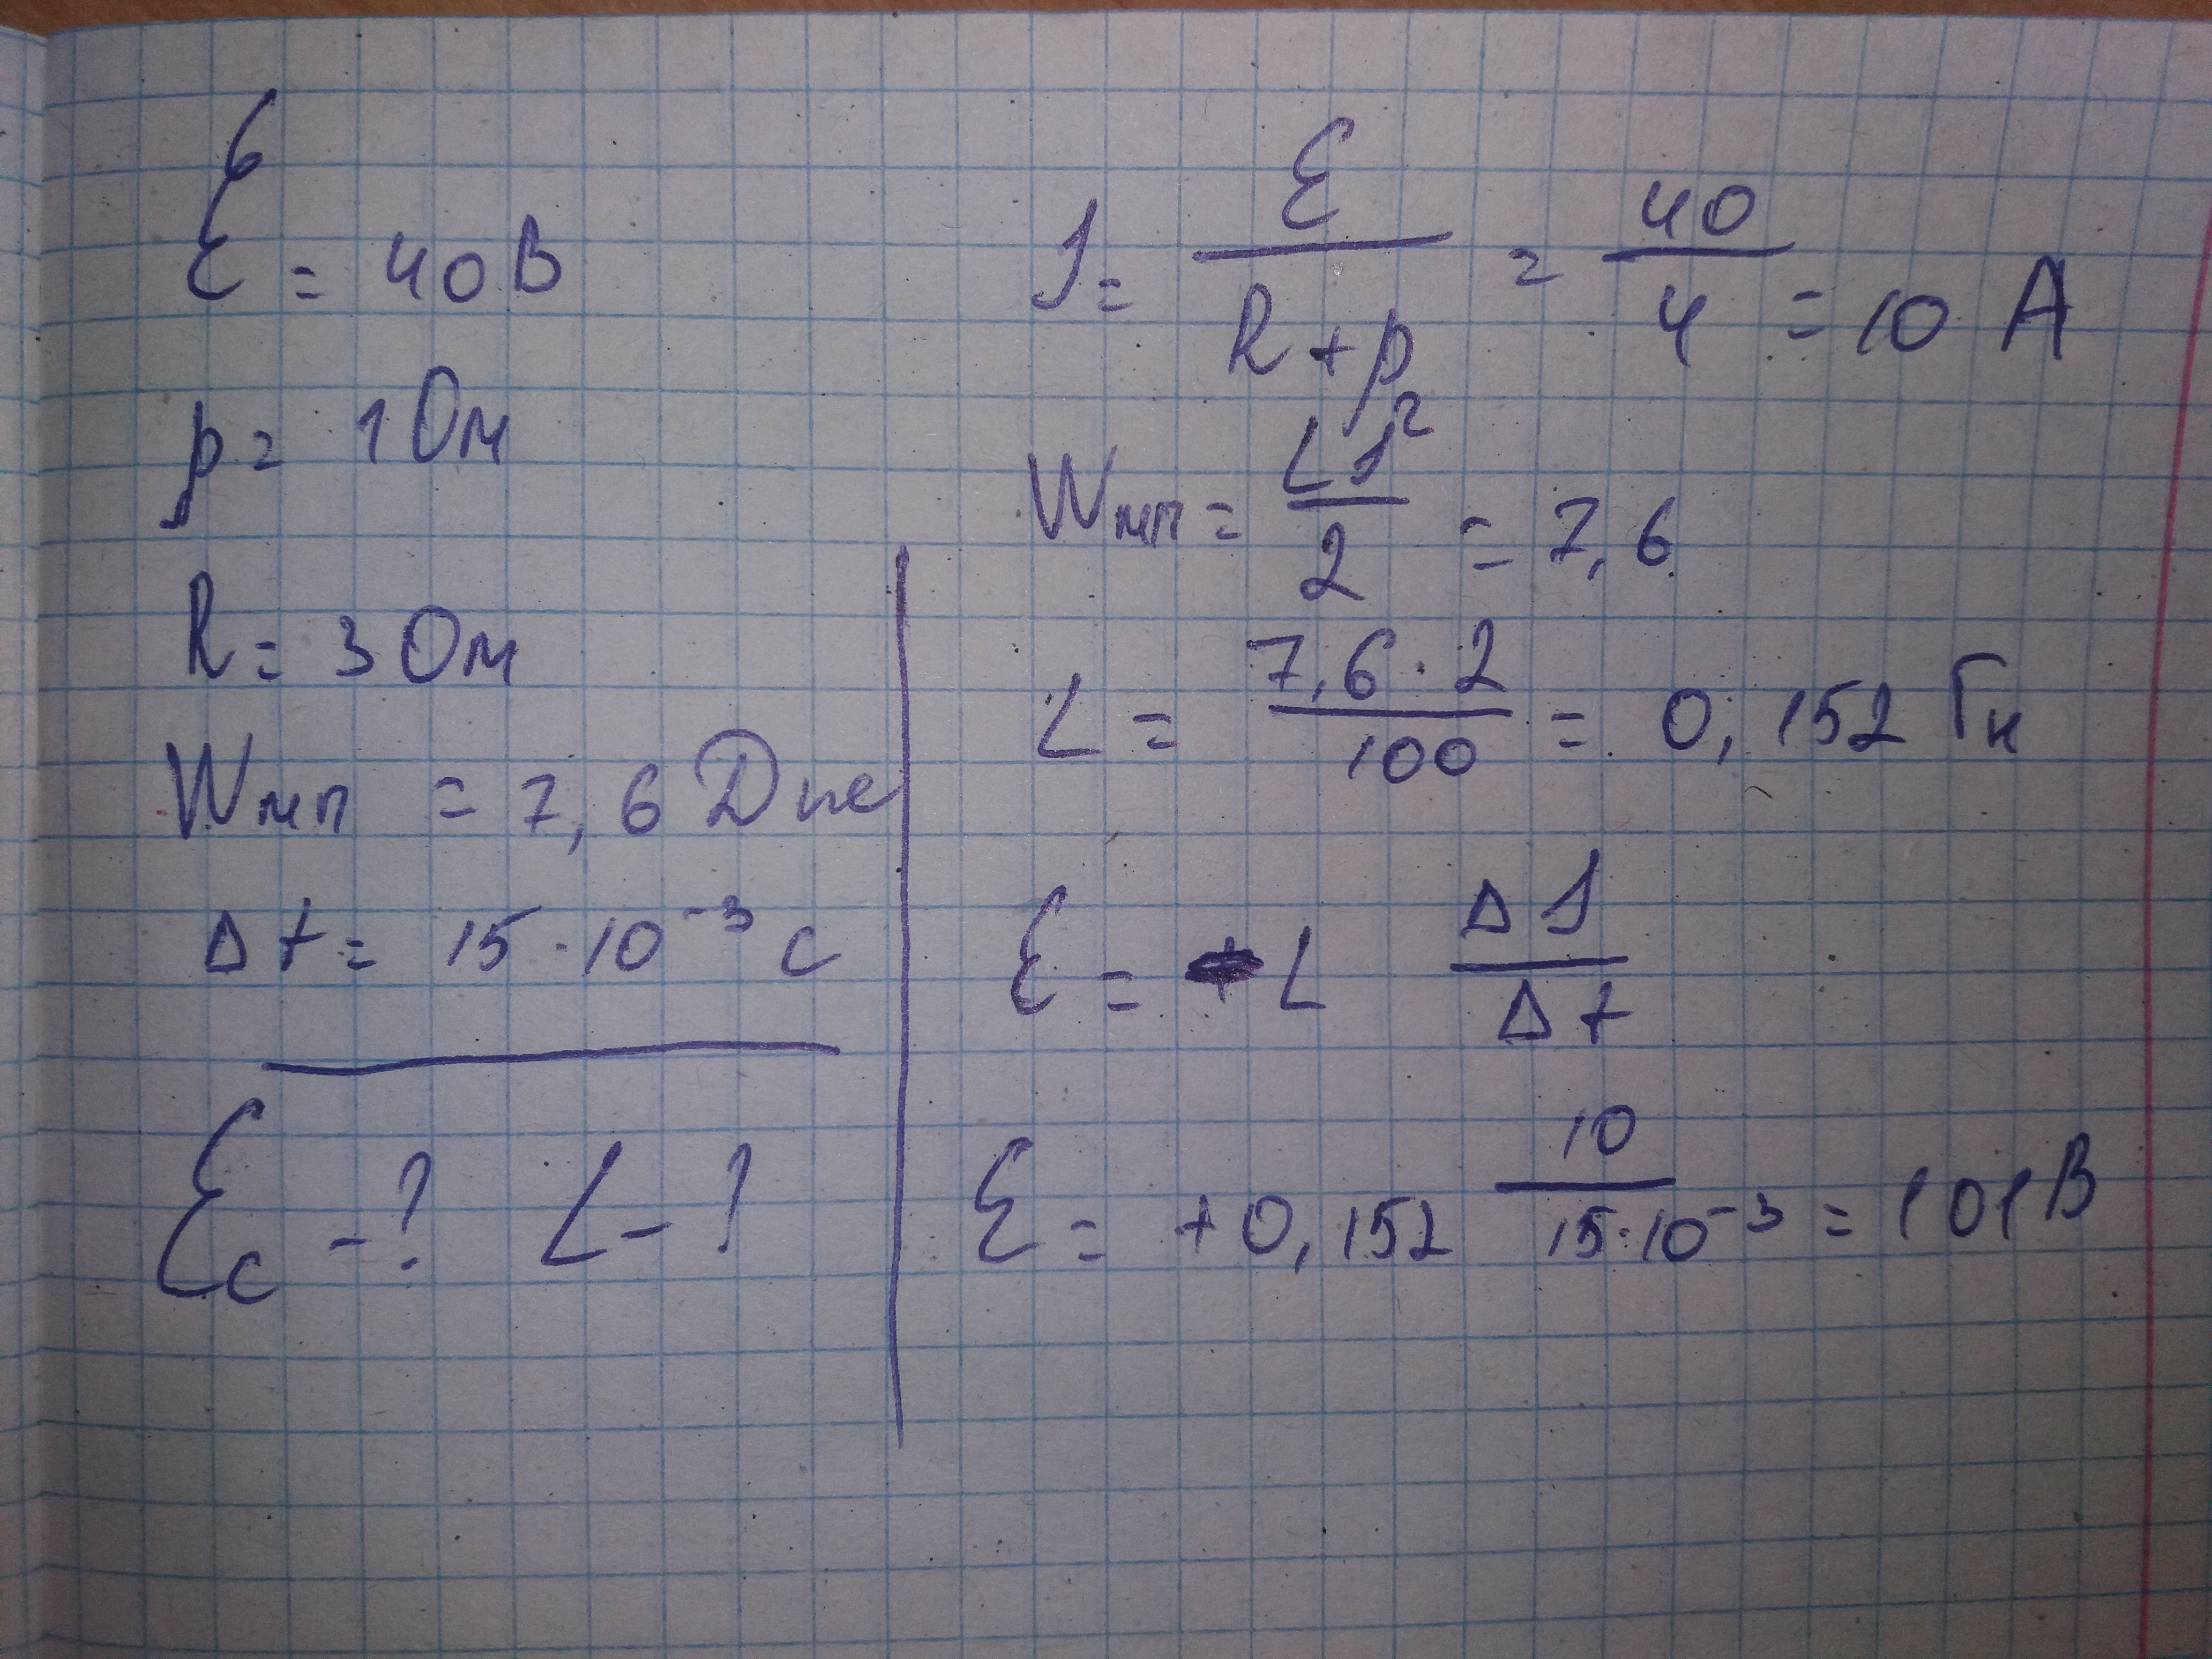 Ɛ = 40 В
p = 1 Ом
R = 3 Ом
Wмп = 7,6 Дж
Δt = 15·10⁻³ с
Ɛc - ? L - ?
J = Ɛ / (R + p) = 40 / 4 = 10 А
Wмп = LJ² / 2 = 7,6
L = 7,6 · 2 / 100 = 0,152 Гн
Ɛ = L ΔJ / Δt
Ɛ = +0,152 10 / 15·10⁻³ = 101 В